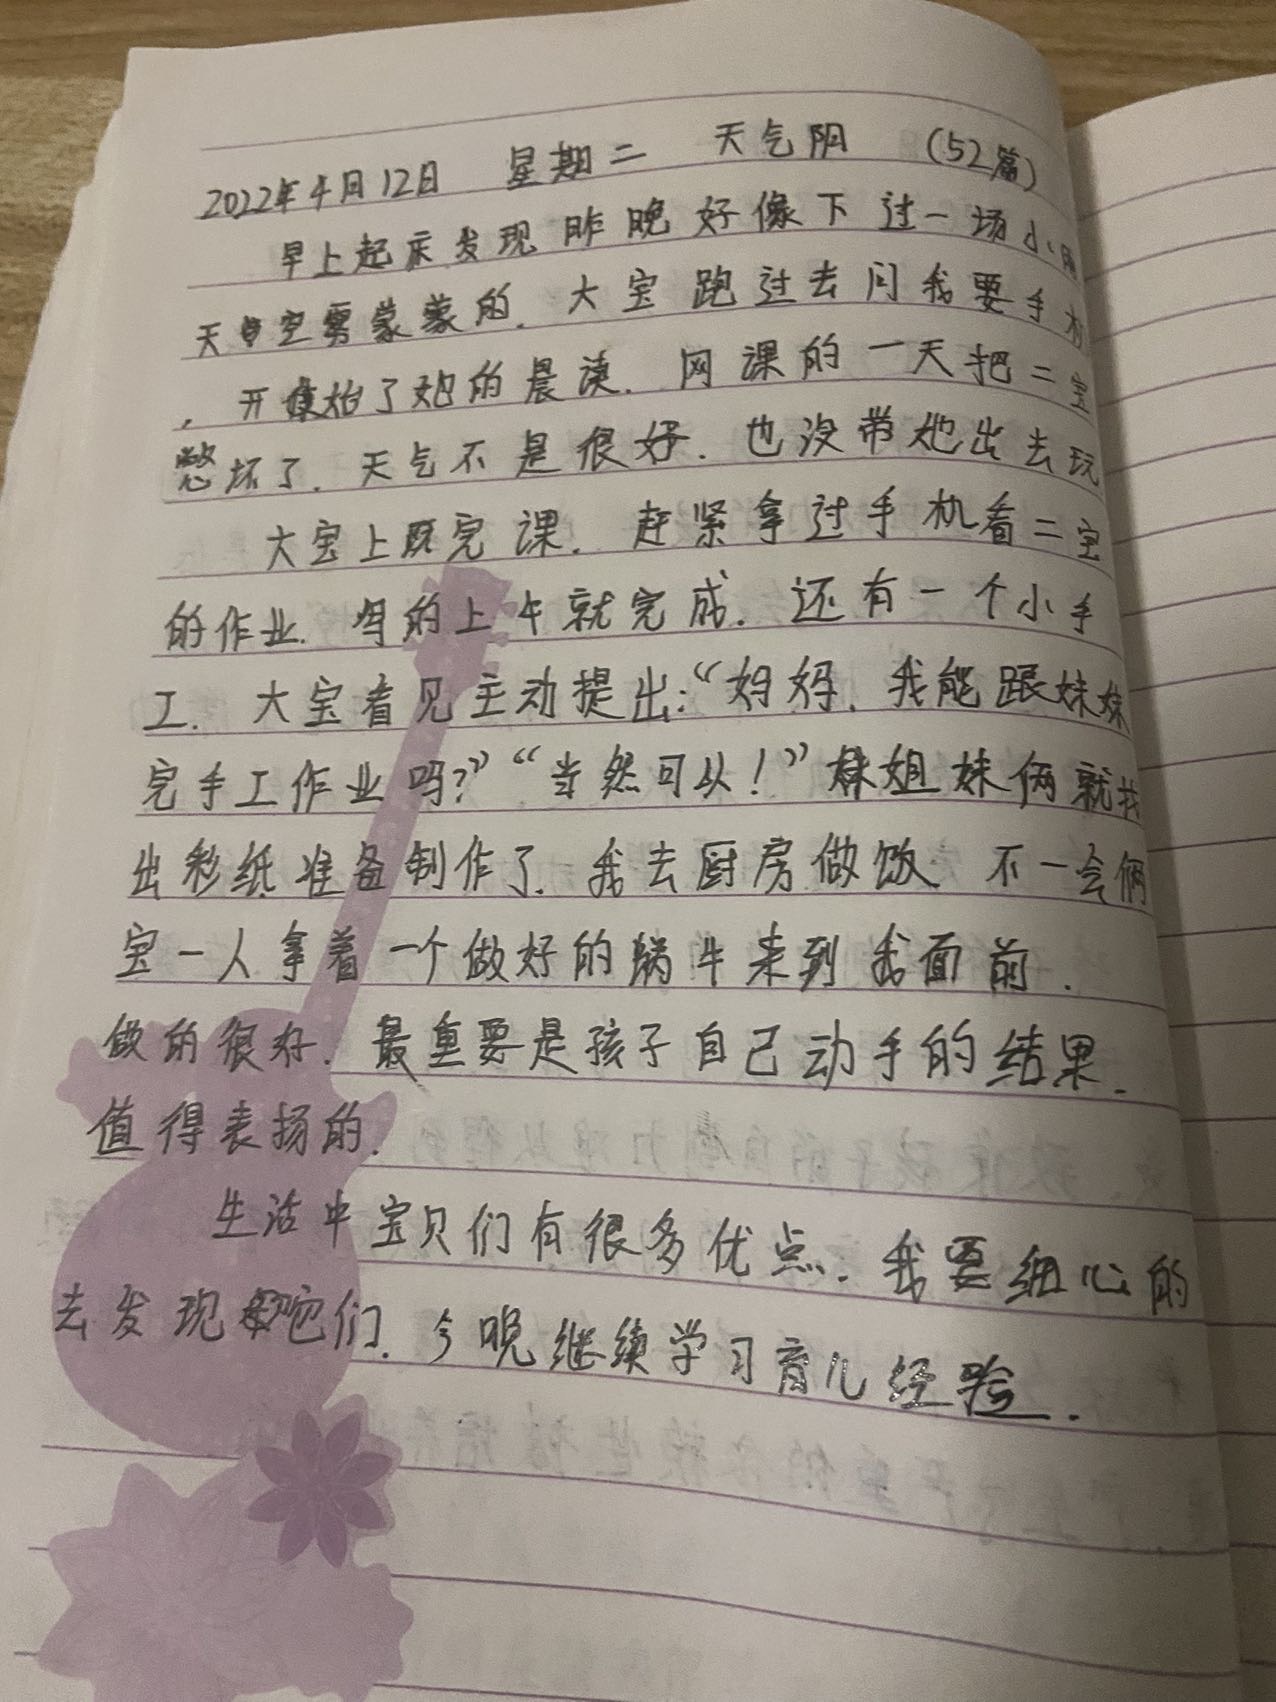 2022年4月12日 星期二 天气阴 (52篇)
早上起床发现昨晚好像下过一场小雨
天空雾蒙蒙的. 大宝跑过去问我要手机
, 开始了她的晨读. 网课的一天把二宝
憋坏了. 天气不是很好. 也没带她出去玩
大宝上完课. 赶紧拿过手机看二宝
的作业. 妈的上午就完成. 还有一个小手
工. 大宝看见主动提出:“妈妈. 我能跟妹妹
完手工作业吗?”“当然可以!” 姐妹俩就找
出彩纸准备制作了. 我去厨房做饭. 不一会俩
宝一人拿着一个做好的蜗牛来到我面前.
做的很好. 最重要是孩子自己动手的结果.
值得表扬的.
生活中宝贝们有很多优点. 我要细心的
去发现它们. 今晚继续学习育儿经验.